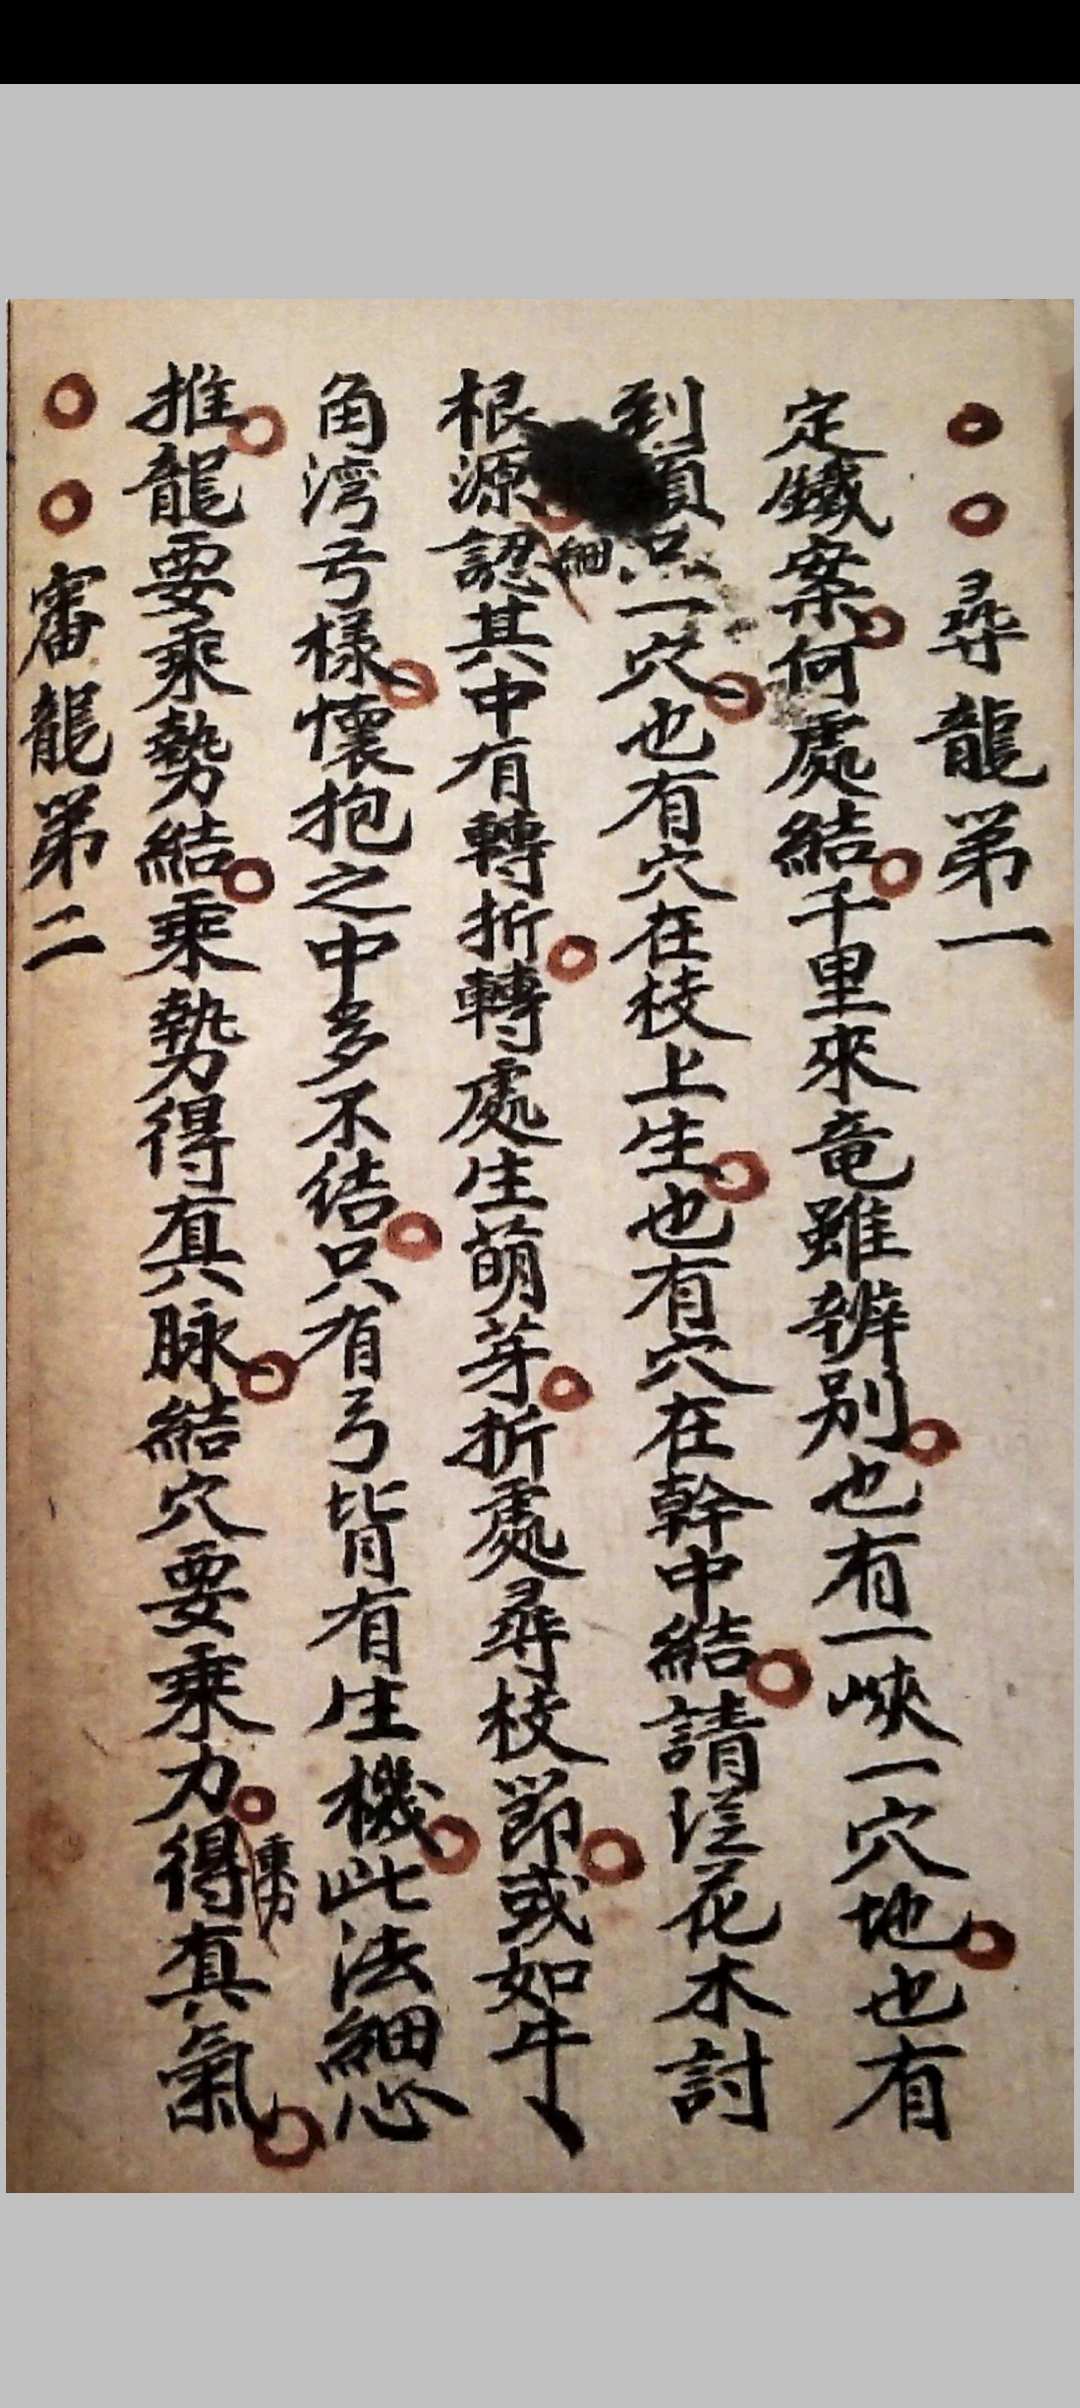 尋龍苐一
定鐵案何處結千里來竜雖辨别也有一峽一穴地也有
到頭只一穴也有穴在枝上生也有穴在幹中結請從花木討
根源細認其中有轉折轉處生萌芽折處尋枝節或如牛
角湾弓樣懷抱之中多不结只有弓背有生機此法細心
推龍要乘勢結乘勢得真脉結穴要乘力乘力得真氣
審龍苐二